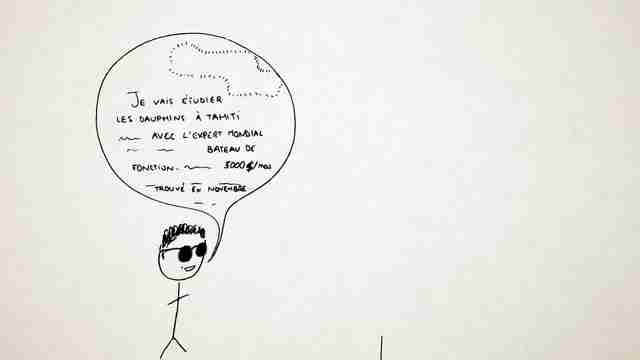 Je vais étudier
les dauphins à Tahiti
avec l'expert mondial
bateau de
fonction. 3000 $/mois
trouvé en novembre